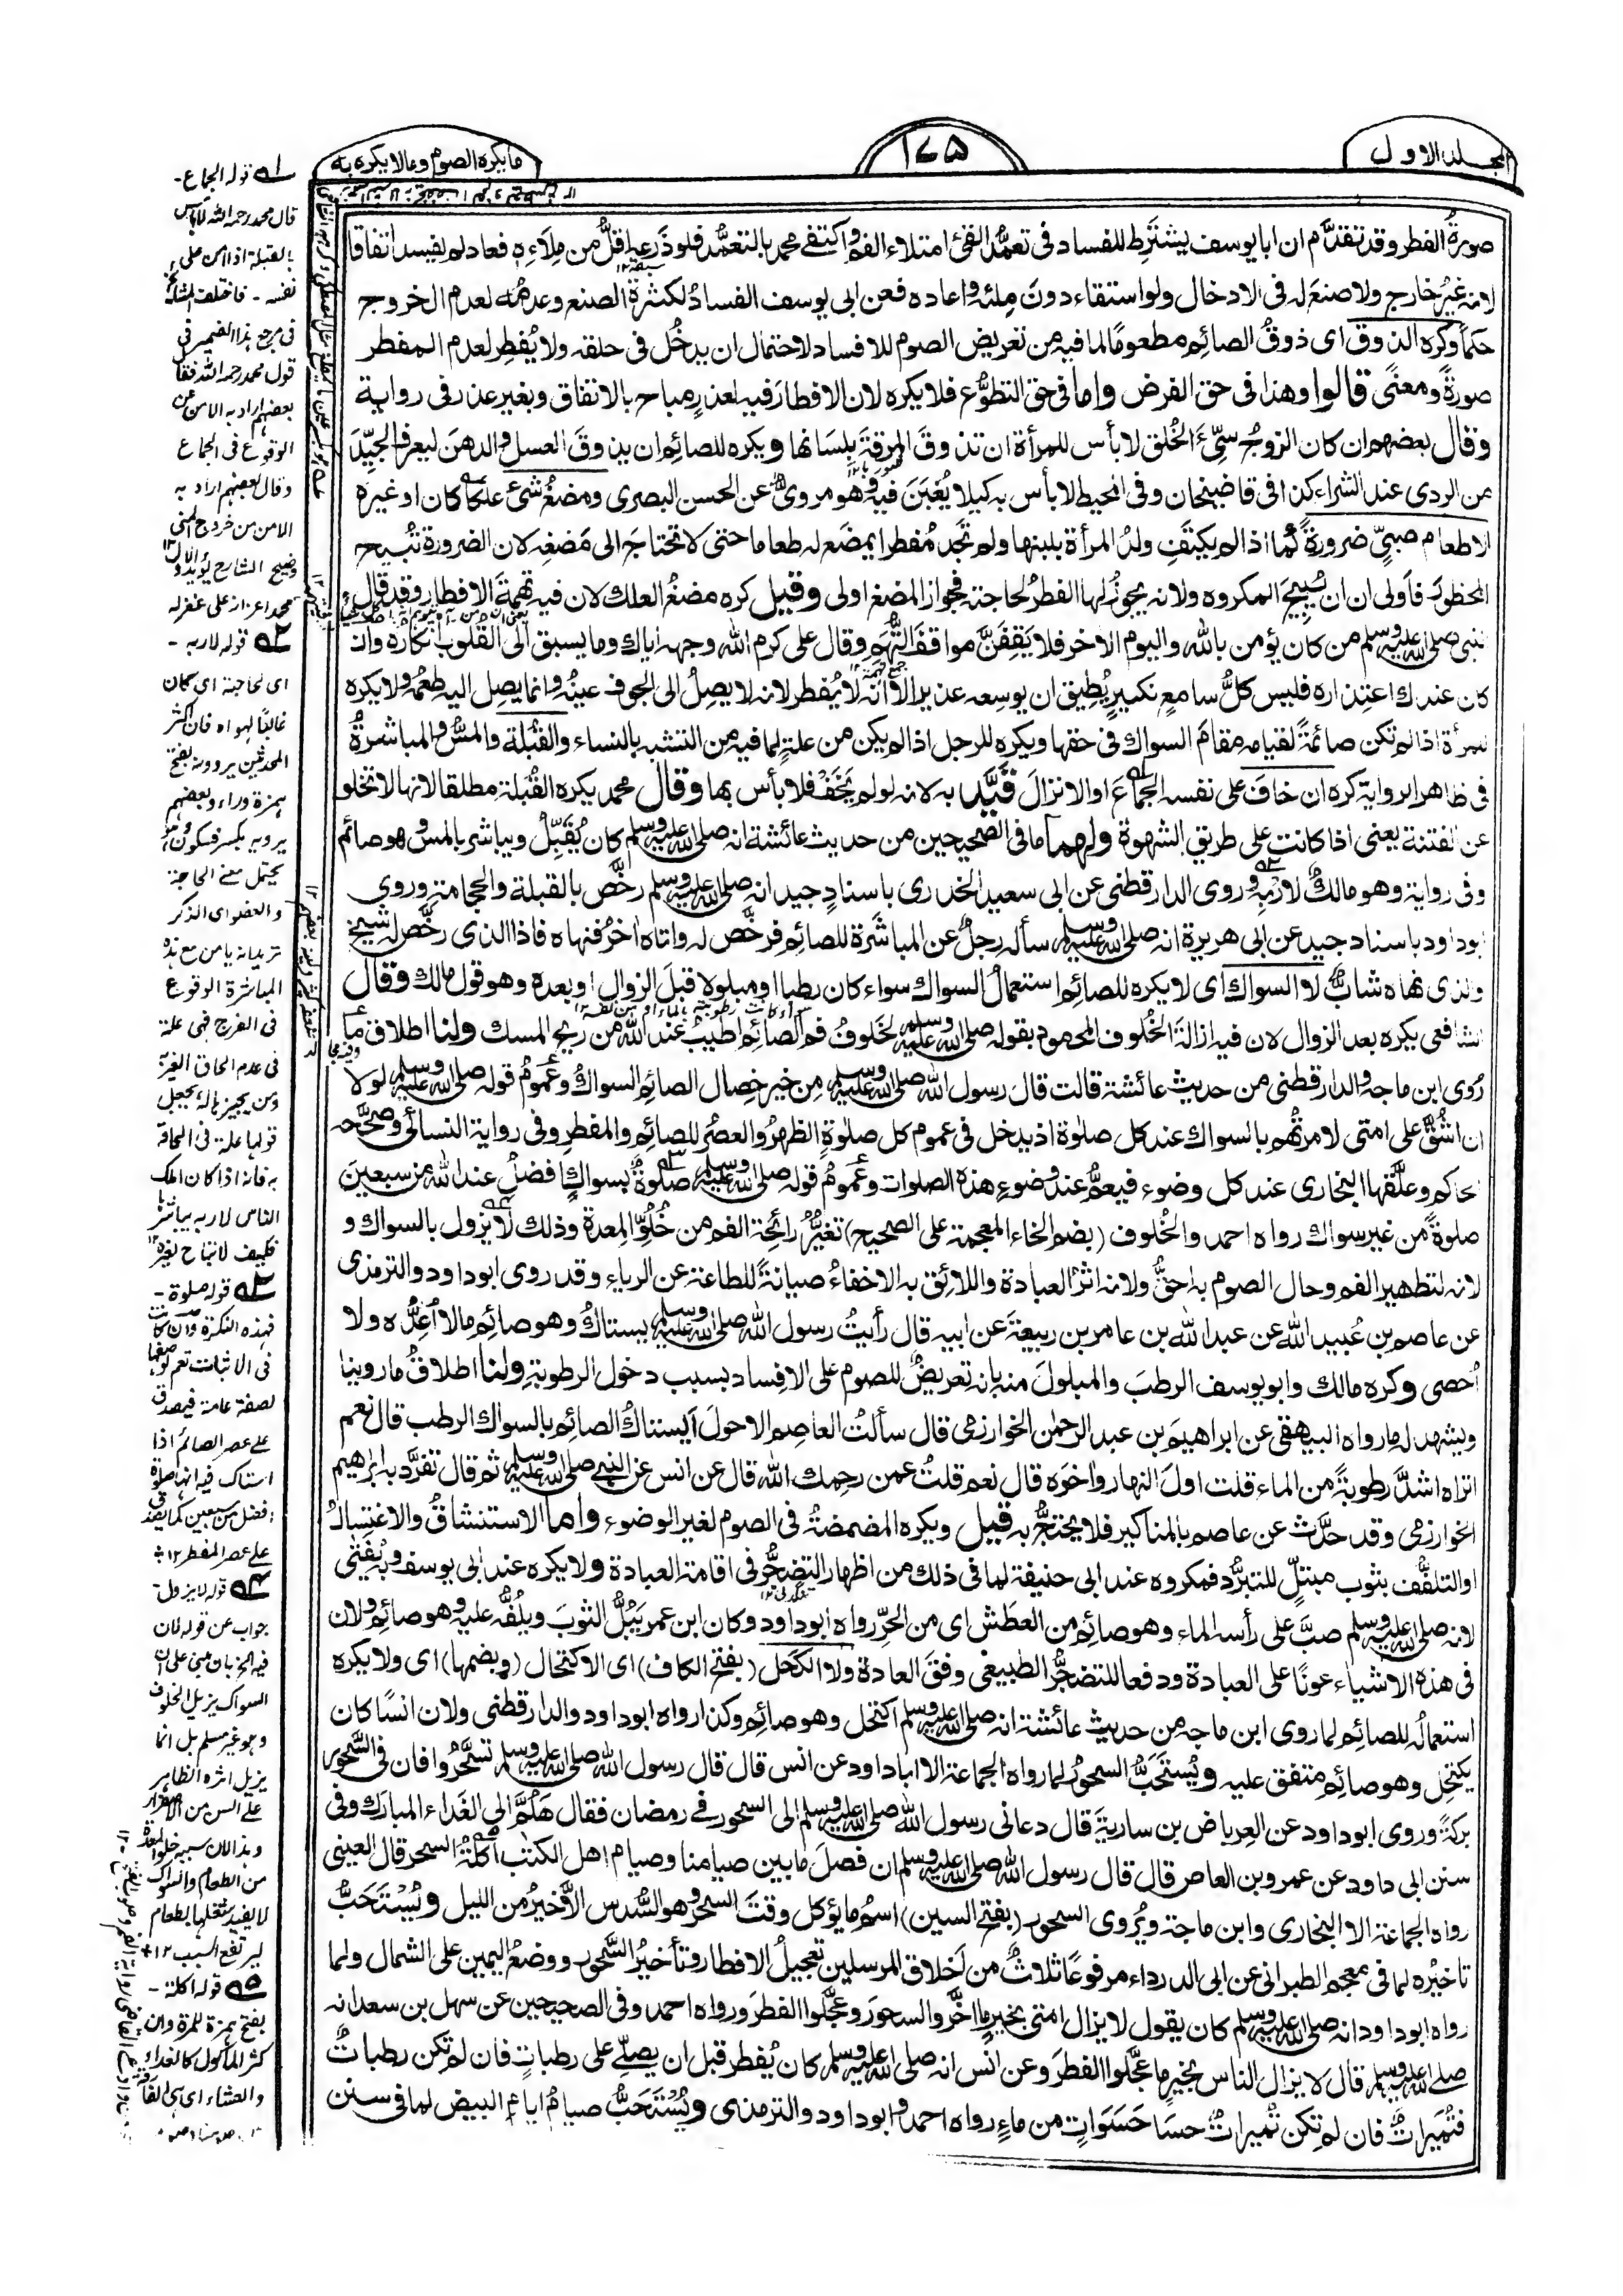 المجلد الاول
١٧٥
ما يكره الصوم وما لا يكره به
صورةً الفطر وقد تقدَّم ان ابا يوسف يشترط للفساد فى تعمُّد القئ امتلاء الفم واكتفے محمد بالتعمُّد فلو ذرعه اقلُّ من مِلاءه فعاد لم يفسد اتفاقا
لانه غيرُ خارج ولا صنعَ له فى الادخال ولو استقاء دونَ مِلئه واعاده فعن ابى يوسف الفسادُ لكثرة الصنع وعدمُه لعدم الخروج
حكماً وكره الذوق اى ذوقُ الصائم مطعومًا لما فيه من تعريض الصوم للافساد لاحتمال ان يدخُل فى حلقه ولا يُفطر لعدم المفطر
صورةً ومعنًى قالوا وهذا فى حق الفرض واما فى حق التطوُّع فلا يكره لان الافطار فيه لعذرٍ مباح بالاتفاق وبغير عذر فى رواية
وقال بعضهم ان كان الزوجُ سَيِّئَ الخُلق لا بأس للمرأة ان تذوقَ المرقةَ بلسانها ويكره للصائم ان يذوقَ العسل والدهنَ ليعرف الجيِّدَ
من الردى عند الشراء كذا فى قاضيخان وفى المحيط لا بأس به كيلا يُغبَنَ فيه وهو مروىٌّ عن الحسن البصرى ومضغُ شئ علكا كان او غيره
الا طعام صبىٍّ ضرورةً كما اذا لم يكتفِ ولدُ المرأة بلبنها ولم تجد مُفطرا يمضغ له طعاما حتى لا تحتاجَ الى مَضغِه لان الضرورة تُبيح
المحظورَ فاَولى ان تُبيحَ المكروه ولانه يجوزُ لها الفطرُ لحاجته فجواز المضغ اولى وقيل كره مضغُ العلك لان فيه تهمةَ الافطار وقد قال
النبى صلى الله عليه وسلم من كان يؤمن بالله واليوم الاخر فلا يَقِفَنَّ مواقفَ التُّهَم وقال على كرم الله وجهه اياك وما يسبق الى القُلوب انكاره وان
كان عندك اعتذاره فليس كلُّ سامعٍ نكيرٍ يُطيق ان يوسعه عذرا الا انه لا يُفطر لانه لا يصِلُ الى الجوف عينُه وانما يصِل اليه طعمُه ولا يكره
للمرأة اذا لم تكن صائمةً لقيامه مقامَ السواك فى حقها ويكره للرجل اذا لم يكن من علةٍ لما فيه من التشبه بالنساء والقُبلة والمسُّ والمباشرةُ
فى ظاهر الرواية كره ان خافَ على نفسه الجماعَ او الانزال قُيِّد به لانه لو لم يَخَفْ فلا بأس بها وقال محمد يكره القُبلة مطلقا لانها لا تخلو
عن الفتنة يعنى اذا كانت على طريق الشهوة ولهما ما فى الصحيحين من حديث عائشة انه صلى الله عليه وسلم كان يُقبِّلُ ويباشر بالمس وهو صائم
وفى رواية وهو مالكٌ لارْبِه وروى الدارقطنى عن ابى سعيد الخدرى باسنادٍ جيد انه صلى الله عليه وسلم رخَّص بالقبلة والحجامة وروى
ابوداود باسناد جيد عن ابى هريرة انه صلى الله عليه وسلم سأله رجلٌ عن المباشَرة للصائم فرخَّص له واتاه اٰخرُ فنهاه فاذا الذى رخَّص له شيخٌ
والذى نهاه شابٌّ لا السواك اى لا يكره للصائم استعمالُ السواك سواء كان رطبا او مبلولا قبلَ الزوال او بعده وهو قول مالك وقال
الشافعى يكره بعد الزوال لان فيه ازالةَ الخُلوف المحمود بقوله صلى الله عليه وسلم لخَلوفُ فم الصائم اطيبُ عند الله من ريح المسك ولنا اطلاق ما
رُوى ابن ماجه والدارقطنى من حديث عائشة قالت قال رسول الله صلى الله عليه وسلم من خير خصال الصائم السواكُ وعمومُ قوله صلى الله عليه وسلم لولا
ان اشُقَّ على امتى لامرتُهم بالسواك عند كل صلوة اذ يدخل فى عموم كل صلوة الظهرُ والعصرُ للصائم والمفطر وفى رواية النسائى وصححه
الحاكم وعلَّقها البخارى عند كل وضوء فيعمُّ عند وضوءِ هذه الصلوات وعمومُ قوله صلى الله عليه وسلم صلوةٌ بسواكٍ افضلُ عند الله من سبعينَ
صلوةً من غير سواك رواه احمد والخُلوف (بضم الخاء المعجمة على الصحيح) تغيُّرُ رائحة الفم من خُلُوِّ المِعدة وذلك لا يزول بالسواك و
لانه لتطهير الفم وحال الصوم به احقُّ ولانه اثرُ العبادة واللائق به الاخفاءُ صيانةً للطاعة عن الرياء وقد روى ابوداود والترمذى
عن عاصم بن عُبيد الله عن عبد الله بن عامر بن ربيعة عن ابيه قال رأيتُ رسول الله صلى الله عليه وسلم يستاك وهو صائم ما لا اَعُدُّه ولا
اُحصى وكره مالك وابو يوسف الرطبَ والمبلولَ منه بانه تعريضٌ للصوم على الافساد بسبب دخول الرطوبة ولنا اطلاقُ ما روينا
ويشهد له ما رواه البيهقى عن ابراهيمَ بن عبد الرحمٰن الخوارزمى قال سألتُ العاصم الاحولَ اَيستاكُ الصائم بالسواك الرطب قال نعم
اتراه اشدَّ رطوبةً من الماء قلت اولَ النهار واٰخره قال نعم قلتُ عمن رحمك الله قال عن انس عن النبى صلى الله عليه وسلم ثم قال تفرَّد به ابراهيم
الخوارزمى وقد حدَّث عن عاصم بالمناكير فلا يحتجُّ به قيل ويكره المضمضةُ فى الصوم لغير الوضوء واما الاستنشاقُ والاغتسالُ
او التلفُّف بثوب مبتلٍّ للتبرُّد فمكروه عند ابى حنيفة لما فى ذلك من اظهار التضجُّر فى اقامة العبادة ولا يكره عند ابى يوسف وبه يُفتٰى
لانه صلى الله عليه وسلم صبَّ على رأسه الماء وهو صائم من العطَش اى من الحَرِّ رواه ابوداود وكان ابن عمر يَبُلُّ الثوبَ ويلُفُّه عليه وهو صائم ولان
فى هذه الاشياء عونًا على العبادة ودفعا للتضجُّر الطبيعى وفقَ العادة ولا الكَحل (بفتح الكاف) اى الاكتحال (وبضمها) اى ولا يكره
استعمالُه للصائم لما روى ابن ماجه من حديث عائشة انه صلى الله عليه وسلم اكتحل وهو صائم وكذا رواه ابوداود والدارقطنى ولان انسًا كان
يكتحل وهو صائم متفق عليه ويُستَحَبُّ السحورُ لما رواه الجماعة الا ابا داود عن انس قال قال رسول الله صلى الله عليه وسلم تسحَّروا فان فى السَّحور
بركةً وروى ابوداود عن العِرباض بن ساريةَ قال دعانى رسول الله صلى الله عليه وسلم الى السحور فے رمضان فقال هَلُمَّ الى الغَداء المبارك وفى
سنن ابى داود عن عمرو بن العاص قال قال رسول الله صلى الله عليه وسلم ان فصلَ ما بين صيامنا وصيام اهل الكتٰب اَكلةُ السحر قال العينى
رواه الجماعة الا البخارى وابن ماجة ويُروى السحور (بفتح السين) اسمُ ما يؤكل وقتَ السحر وهو السُّدس الاَخيرُ من الليل ويُسْتَحَبُّ
تاخيرُه لما فى معجم الطبرانى عن ابى الدرداء مرفوعًا ثلاثٌ من اَخلاق المرسلين تعجيلُ الافطار وتأخيرُ السَّحور ووضعُ اليمين على الشمال ولما
رواه ابوداود انه صلى الله عليه وسلم كان يقول لا يزال امتى بخيرٍ ما اخَّروا السحورَ وعجَّلوا الفطرَ ورواه احمد وفى الصحيحين عن سهل بن سعد انه
صلى الله عليه وسلم قال لا يزال الناس بخيرٍ ما عجَّلوا الفطرَ وعن انس انه صلى الله عليه وسلم كان يُفطر قبل ان يصلے على رطباتٍ فان لم تكن رطباتٌ
فتُمَيراتٌ فان لم تكن تُميراتٌ حسا حَسَوَاتٍ من ماءٍ رواه احمد وابوداود والترمذى ويُسْتَحَبُّ صيامُ ايام البيض لما فى سنن
١ قوله الجماع -
قال محمد رحمه الله لا بأس
بالقبلة اذا امن على
نفسه - فاختلف المشائخ
فى مرجع هذا الضمير فى
قول محمد رحمه الله فقال
بعضهم اراد به الامن عن
الوقوع فى الجماع
وقال بعضهم اراد به
الامن من خروج المنى
٢ قوله لاربه -
اى لحاجته اى كان
غالبًا لهواه فان اكثر
المحدثين يروونه بفتح
همزة وراء وبعضهم
يرويه بكسر فسكون وهو
يحتمل معنے الحاجة
والعضو اى الذكر
المباشرة الوقوع
فى الفرج فهى علة
فى عدم الحاق الغير به
به فانه اذا كان املك
الناس لاربه يباشر
فكيف لا تباح لغيره ١٢
٣ قوله صلوة -
فهذه النكرة وان كانت
فى الاثبات تعم لوصفها
بصفة عامة فيصدق
علے عصر الصائم اذا
استاك فيه انها صلوة
افضل من سبعين كما يصدق
علے عصر المفطر ١٢
٤ قوله لا يزول -
جواب عن قوله لان
السواك يزيل الخلوف
وهو غير مسلم بل انما
يزيل اثره الظاهر
علے السن من الاصفرار
من الطعام والسواك
لا يفيد شغلها بطعام
ليرتفع السبب ١٢
٥ قوله اكلة -
بفتح همزة للمرة وان
كثر المأكول كالغداء